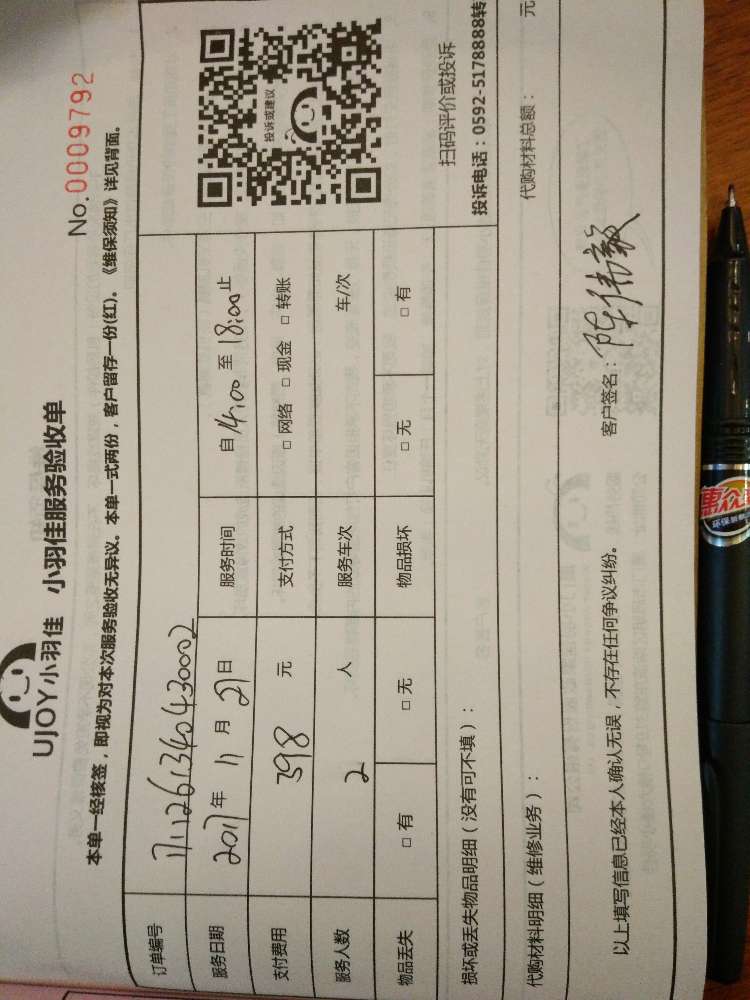 UJOY小羽佳 小羽佳服务验收单
No.0009792
本单一经核签，即视为对本次服务验收无异议。本单一式两份，客户留存一份(红)。《维保须知》详见背面。
订单编号 1711261340430002
服务日期 2017年 11月 27日 服务时间 自 14:00 至 18:00 止
支付费用 398 元 支付方式 □ 网络 □ 现金 □ 转账
服务人数 2 人 服务车次 车/次
物品丢失 □ 有 □ 无 物品损坏 □ 无 □ 有
投诉或建议
扫码评价或投诉
投诉电话：0592-5178888转
损坏或丢失物品明细（没有可不填）：
代购材料明细（维修业务）： 代购材料总额： 元
以上填写信息已经本人确认无误，不存在任何争议纠纷。 客户签名：陈伟毅
惠众
环保